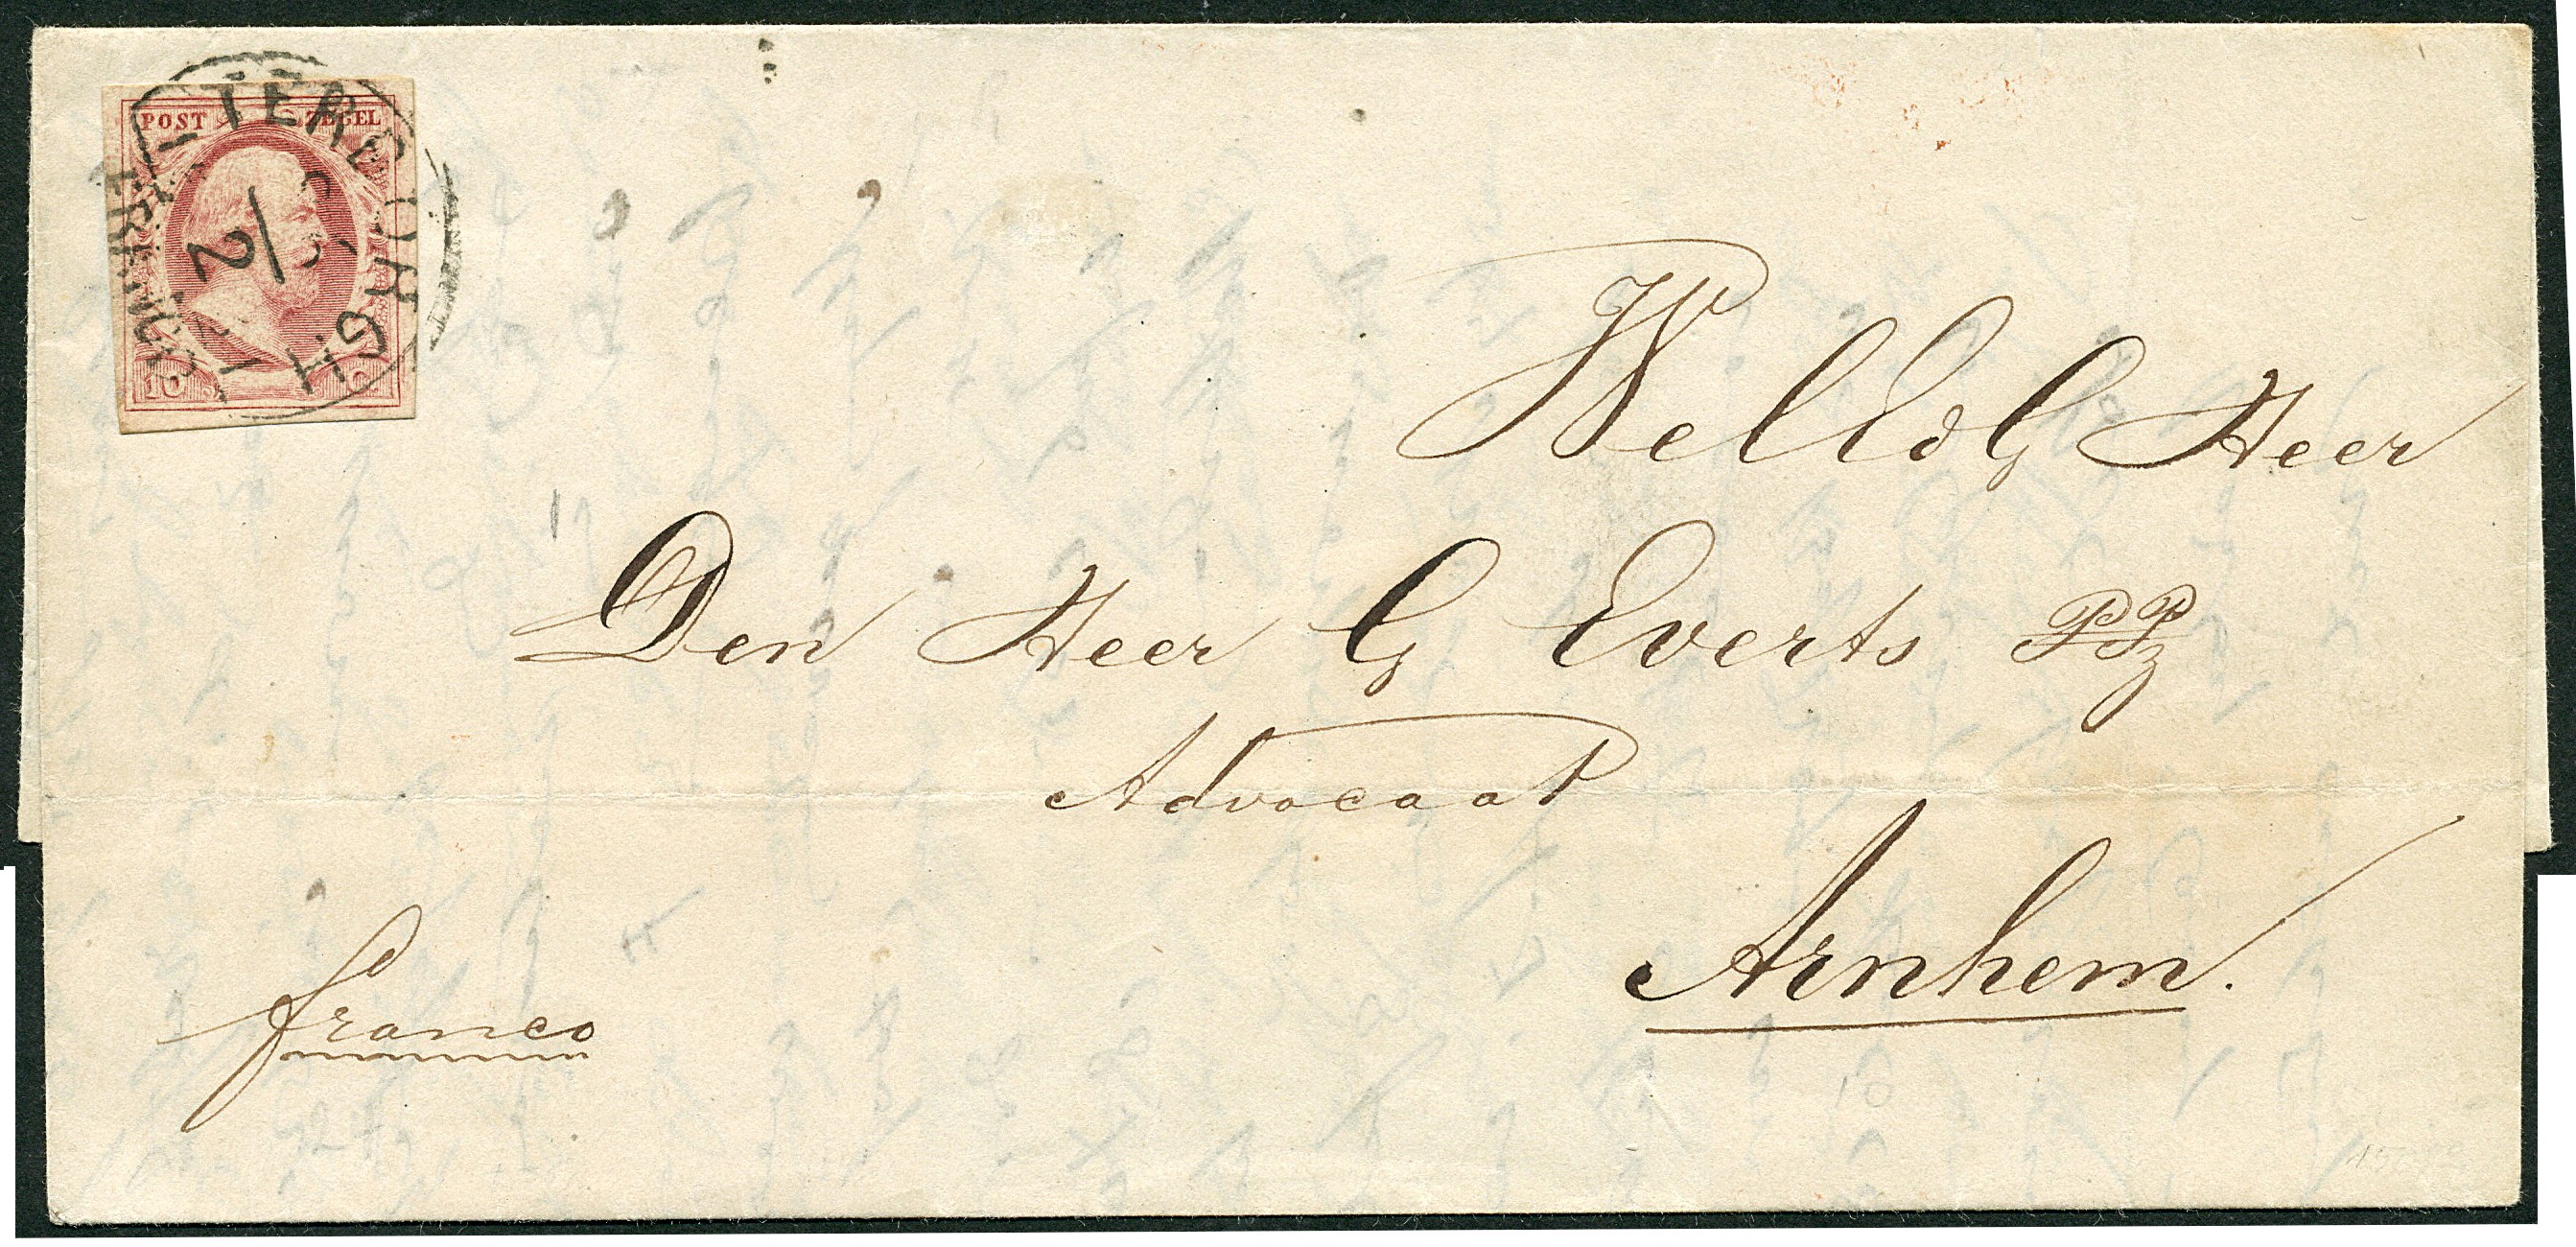 POST ZEGEL
10 C
FRANCO
WelEdG Heer
Den Heer G Everts PPz
Advocaat
Arnhem.
franco
10